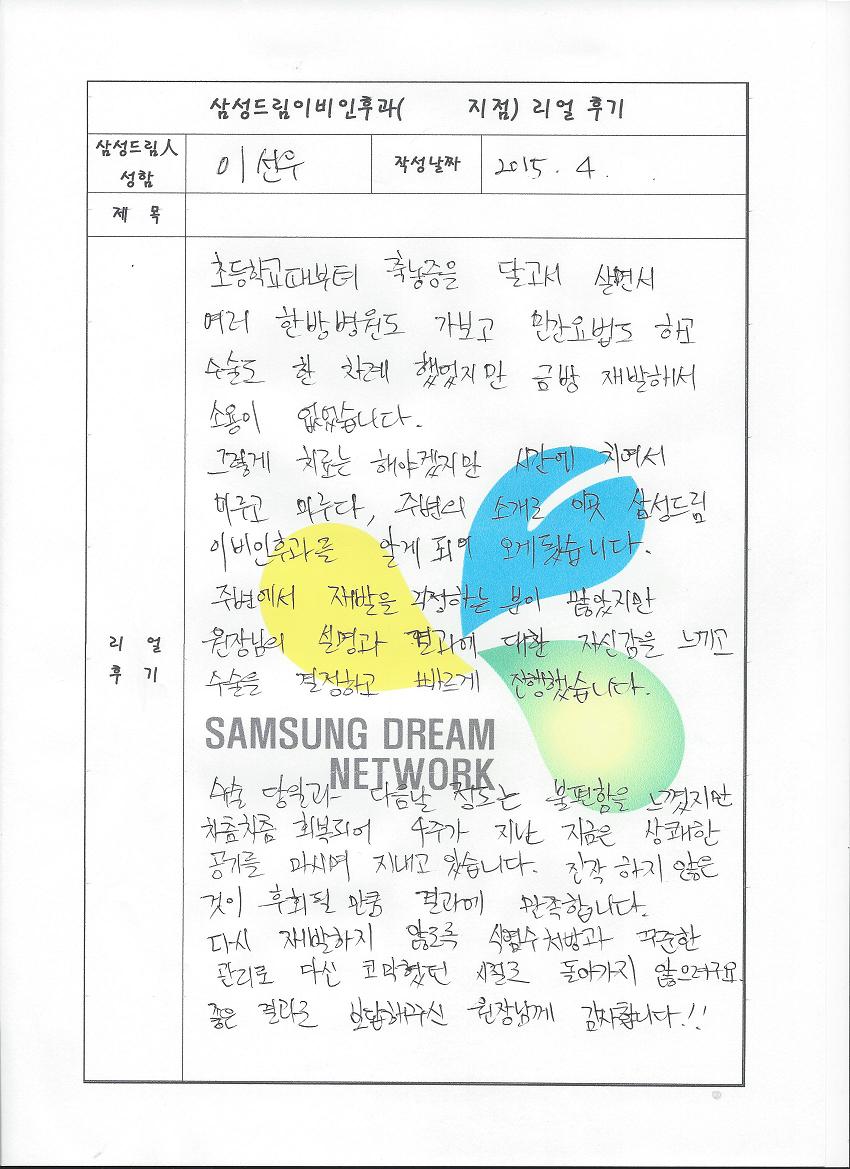 삼성드림이비인후과( 지점) 리얼 후기
삼성드림人 성함 이선우 작성날짜 2015. 4. .
제 목
리 얼 후 기
초등학교때부터 축농증을 달고서 살면서
여러 한방병원도 가보고 민간요법도 하고
수술도 한 차례 했었지만 금방 재발해서
소용이 없었습니다.
그렇게 치료는 해야겠지만 시간에 치여서
미루고 미루다, 주변의 소개로 이곳 삼성드림
이비인후과를 알게 되어 오게됐습니다.
주변에서 재발을 걱정하는 분이 많았지만
원장님의 설명과 결과에 대한 자신감을 느끼고
수술을 결정하고 빠르게 진행했습니다.
SAMSUNG DREAM
NETWORK
수술 당일과 다음날 정도는 불편함을 느꼈지만
차츰차츰 회복되어 4주가 지난 지금은 상쾌한
공기를 마시며 지내고 있습니다. 진작 하지 않은
것이 후회될 만큼 결과에 만족합니다.
다시 재발하지 않도록 식염수처방과 꾸준한
관리로 다신 코막혔던 시절로 돌아가지 않으려구요.
좋은 결과로 보답해주신 원장님께 감사합니다!!